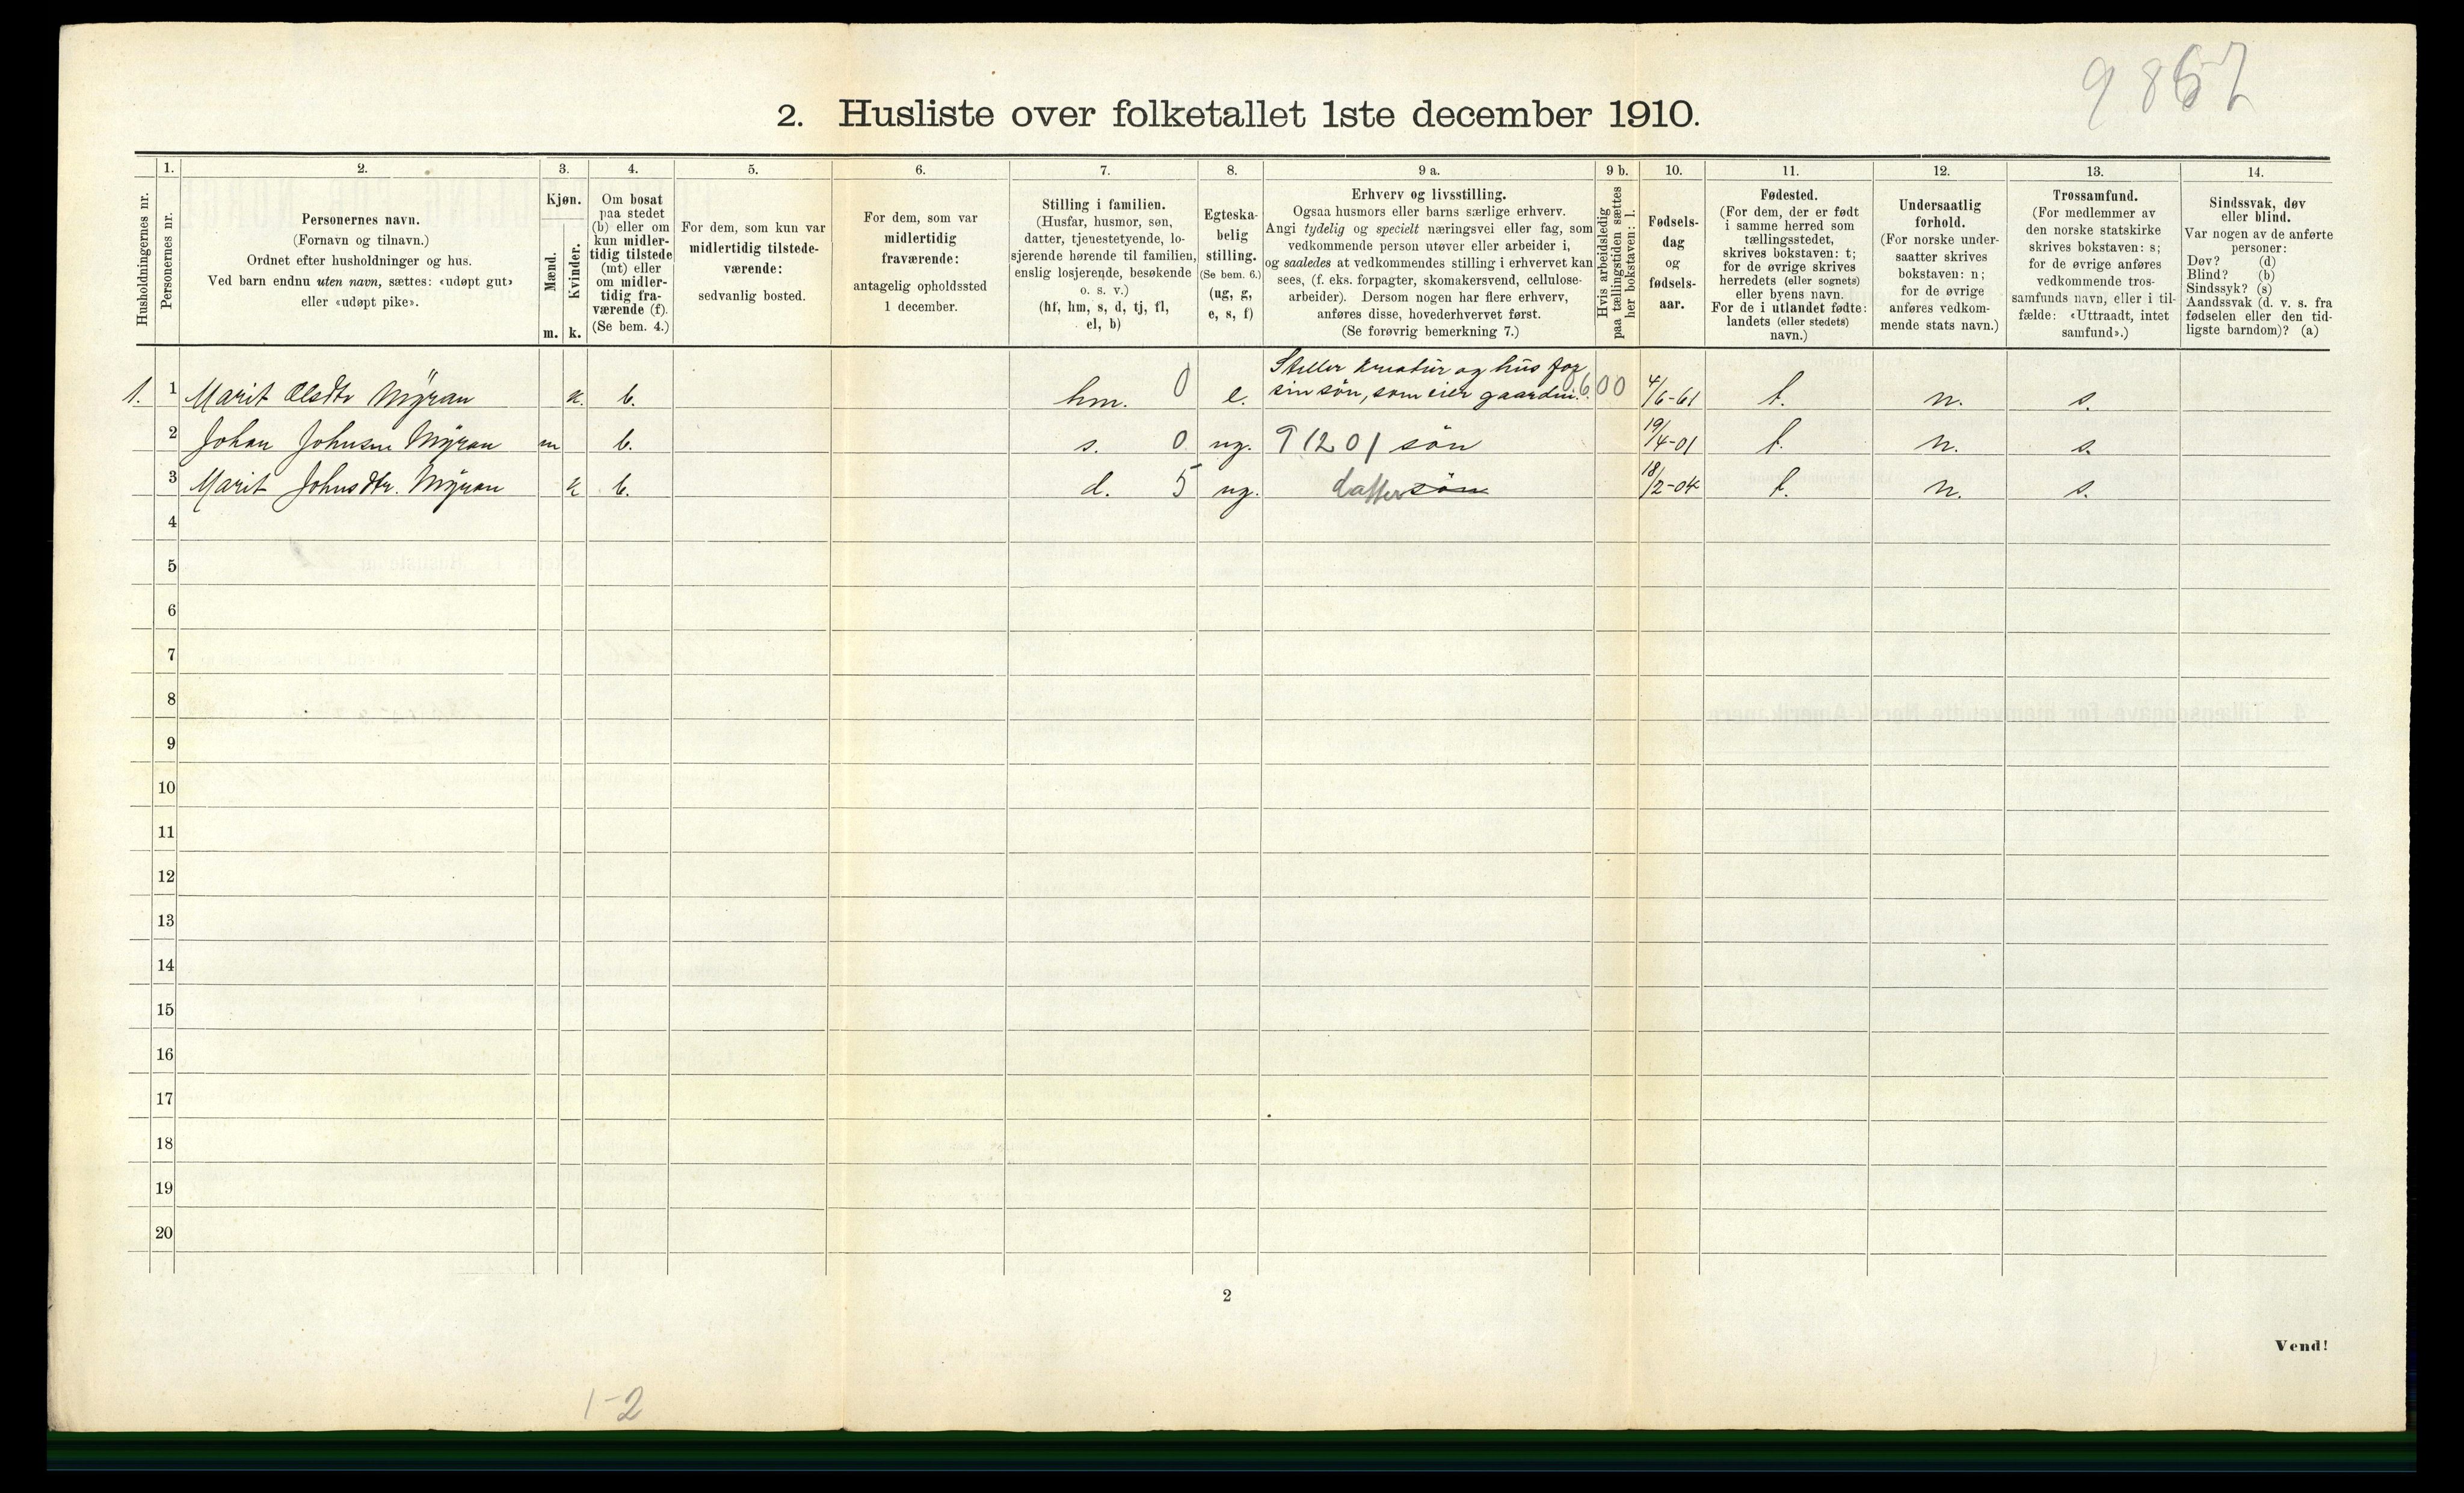 9867
2. Husliste over folketallet 1ste december 1910.
Husholdningernes nr.
1.
Personernes nr.
2.
Personernes navn.
(Fornavn og tilnavn.)
Ordnet efter husholdninger og hus.
Ved barn endnu uten navn, sættes: «udøpt gut»
eller «udøpt pike».
3.
Kjøn.
Mænd.
m.
Kvinder.
k.
4.
Om bosat
paa stedet
(b) eller om
kun midler-
tidig tilstede
(mt) eller
om midler-
tidig fra-
værende (f).
(Se bem. 4.)
5.
For dem, som kun var
midlertidig tilstede-
værende:
sedvanlig bosted.
6.
For dem, som var
midlertidig
fraværende:
antagelig opholdssted
1 december.
7.
Stilling i familien.
(Husfar, husmor, søn,
datter, tjenestetyende, lo-
sjerende hørende til familien,
enslig losjerende, besøkende
o. s. v.)
(hf, hm, s, d, tj, fl,
el, b)
8.
Egteska-
belig
stilling.
(Se bem. 6.)
(ug, g,
e, s, f)
9 a.
Erhverv og livsstilling.
Ogsaa husmors eller barns særlige erhverv.
Angi tydelig og specielt næringsvei eller fag, som
vedkommende person utøver eller arbeider i,
og saaledes at vedkommendes stilling i erhvervet kan
sees, (f. eks. forpagter, skomakersvend, cellulose-
arbeider). Dersom nogen har flere erhverv,
anføres disse, hovederhvervet først.
(Se forøvrig bemerkning 7.)
9 b.
Hvis arbeidsledig
paa tællingstiden sættes
her bokstaven: l.
10.
Fødsels-
dag
og
fødsels-
aar.
11.
Fødested.
(For dem, der er født
i samme herred som
tællingsstedet,
skrives bokstaven: t;
for de øvrige skrives
herredets (eller sognets)
eller byens navn.
For de i utlandet fødte:
landets (eller stedets)
navn.)
12.
Undersaatlig
forhold.
(For norske under-
saatter skrives
bokstaven: n;
for de øvrige
anføres vedkom-
mende stats navn.)
13.
Trossamfund.
(For medlemmer av
den norske statskirke
skrives bokstaven: s;
for de øvrige anføres
vedkommende tros-
samfunds navn, eller i til-
fælde: «Uttraadt, intet
samfund».)
14.
Sindssvak, døv
eller blind.
Var nogen av de anførte
personer:
Døv? (d)
Blind? (b)
Sindssyk? (s)
Aandssvak (d. v. s. fra
fødselen eller den tid-
ligste barndom)? (a)
Steller kreatur og hus for
1. 1 Marit Olsdtr Mÿran k. b. hm. 0 e. sin søn, som eier gaarden. 0600 4/6-61 t. n. s.
2 Johan Johnsen Mÿran m b. s. 0 ug. 91201 søn 19/4-01 t. n. s.
3 Marit Johnsdtr. Mÿran k b. d. 5 ug. datter søn 18/2-04 t. n. s.
4
5
6
7
8
9
10
11
12
13
14
15
16
17
18
19
20
2
Vend!
1-2